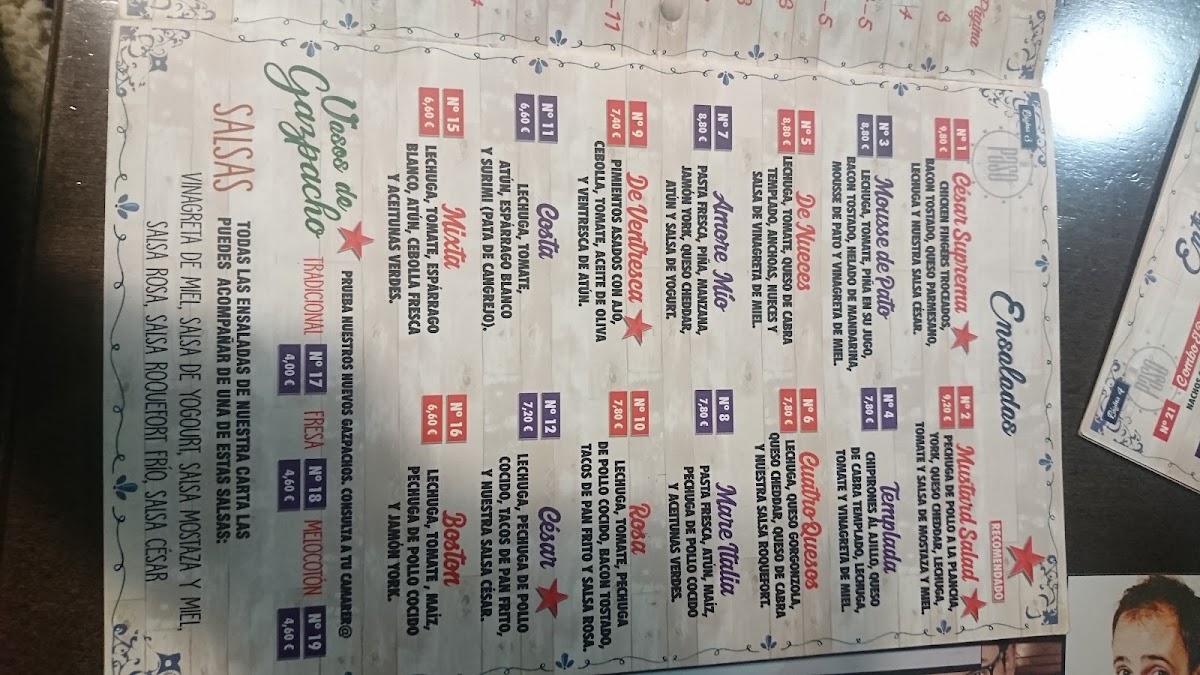 Ensaladas
RECOMENDADO
Nº 1
9,80 €
César Suprema
CHICKEN FINGERS TROCEADOS,
BACON TOSTADO, QUESO PARMESANO,
LECHUGA Y NUESTRA SALSA CÉSAR.
Nº 2
9,20 €
Mustard Salad
PECHUGA DE POLLO A LA PLANCHA,
YORK, QUESO CHEDDAR, LECHUGA,
TOMATE Y SALSA DE MOSTAZA Y MIEL.
Nº 3
8,80 €
Mousse de Pato
LECHUGA, TOMATE, PIÑA EN SU JUGO,
BACON TOSTADO, HELADO DE MANDARINA,
MOUSSE DE PATO Y VINAGRETA DE MIEL.
Nº 4
7,80 €
Templada
CHIPIRONES AL AJILLO, QUESO
DE CABRA TEMPLADO, LECHUGA,
TOMATE Y VINAGRETA DE MIEL.
Nº 5
8,80 €
De Nueces
LECHUGA, TOMATE, QUESO DE CABRA
TEMPLADO, ANCHOAS, NUECES Y
SALSA DE VINAGRETA DE MIEL.
Nº 6
7,80 €
Cuatro Quesos
LECHUGA, QUESO GORGONZOLA,
QUESO CHEDDAR, QUESO DE CABRA
Y NUESTRA SALSA ROQUEFORT.
Nº 7
8,80 €
Amore Mío
PASTA FRESCA, PIÑA, MANZANA,
JAMÓN YORK, QUESO CHEDDAR,
ATÚN Y SALSA DE YOGURT.
Nº 8
7,80 €
Mare Italia
PASTA FRESCA, ATÚN, MAÍZ,
PECHUGA DE POLLO COCIDO
Y ACEITUNAS VERDES.
Nº 9
7,40 €
De Ventresca
PIMIENTOS ASADOS CON AJO,
CEBOLLA, TOMATE, ACEITE DE OLIVA
Y VENTRESCA DE ATÚN.
Nº 10
7,80 €
Rosa
LECHUGA, TOMATE, PECHUGA
DE POLLO COCIDO, BACON TOSTADO,
TACOS DE PAN FRITO Y SALSA ROSA.
Nº 11
6,60 €
Costa
LECHUGA, TOMATE,
ATÚN, ESPÁRRAGO BLANCO
Y SURIMI (PATA DE CANGREJO).
Nº 12
7,20 €
César
LECHUGA, PECHUGA DE POLLO
COCIDO, TACOS DE PAN FRITO,
Y NUESTRA SALSA CÉSAR.
Nº 15
6,60 €
Mixta
LECHUGA, TOMATE, ESPÁRRAGO
BLANCO, ATÚN, CEBOLLA FRESCA
Y ACEITUNAS VERDES.
Nº 16
6,60 €
Boston
LECHUGA, TOMATE, MAÍZ,
PECHUGA DE POLLO COCIDO
Y JAMÓN YORK.
Vasos de
Gazpacho
PRUEBA NUESTROS NUEVOS GAZPACHOS. CONSULTA A TU CAMARER@
TRADICIONAL
Nº 17
4,00 €
FRESA
Nº 18
4,60 €
MELOCOTÓN
Nº 19
4,60 €
SALSAS
TODAS LAS ENSALADAS DE NUESTRA CARTA LAS
PUEDES ACOMPAÑAR DE UNA DE ESTAS SALSAS:
VINAGRETA DE MIEL, SALSA DE YOGOURT, SALSA MOSTAZA Y MIEL,
SALSA ROSA, SALSA ROQUEFORT FRÍO, SALSA CÉSAR
Página
3
Nº 21